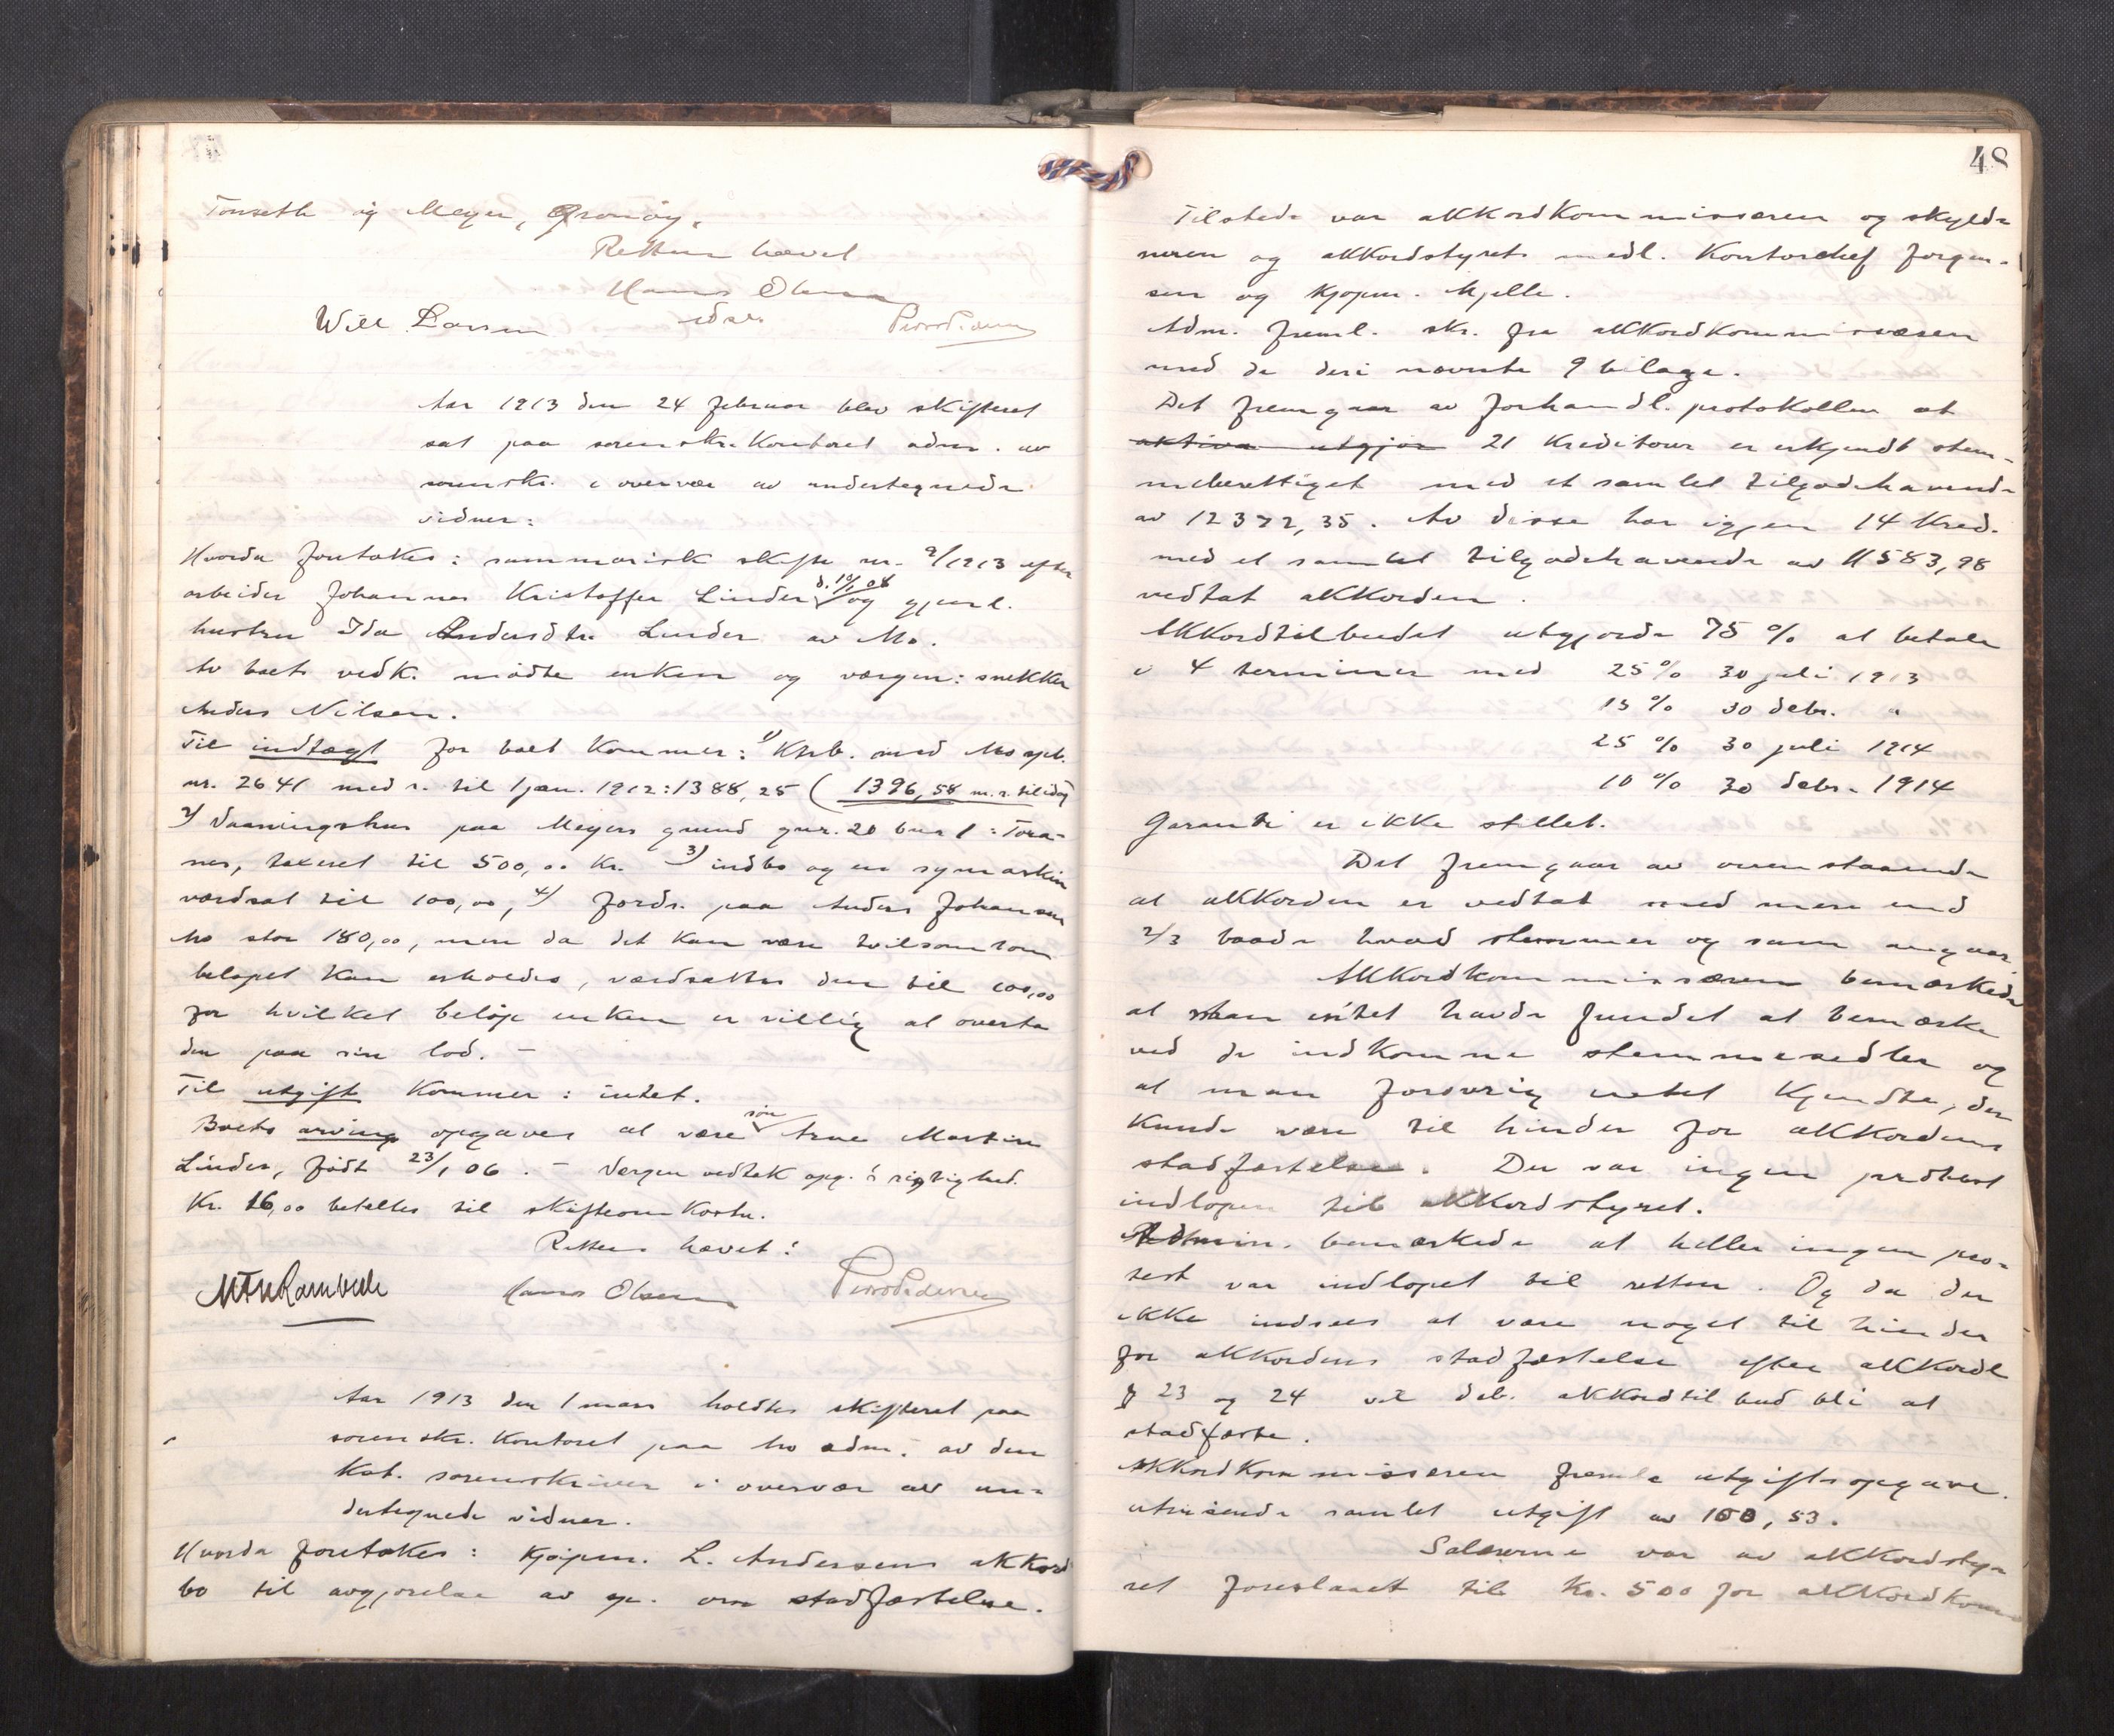 Tonseth og Meyer, Grønøy.
Retten hævet
Hans Olsen
Will Larsen edsv. Peter Pedersen
Aar 1913 den 24 februar blev skifteret
sat paa sorenskr. kontoret adm. av
sorenskr. i overvær av undertegnede
vidner:
Hvorda foretokes: summarisk skifte nr. 9/1913 efter
arbeider Johannes Kristoffer Linder d. 10/1 08 og gjenl.
hustru Ida Andersdtr. Linder av Mo.
Av boets vedk. mødte enken og vergen: snekker
Anders Nilsen.
Til indtægt for boet kommer: 1) Kpb. med Mo spb.
nr. 2641 med r. til 1 jan. 1912: 1388,25 (1396,58 m. r. til idag
2) Vaaningshus paa Meyers grund gnr. 20 bnr 1: Tora-
nes, taxeret til 500,00 kr. 3) indbo og en symaskin
værdsat til 100,00, 4) fordr. paa Anders Johansen
Mo stor 180,00, men da det kan være tvilsom om
beløpet kan erholdes, værdsættes den til 100,00
for hvilket beløp enken er villig at overta
den paa sin lod. -
Til utgift kommer: intet.
Boets arving opgaves at være søn Arne Martin
Linder, født 23/1 06. - Vergen vedtok opg.s rigtighed.
Kr. 16,00 betaltes til skifteomkostn.
Retten hævet:
Hans Olsen Peter Pedersen
Aar 1913 den 1 mars holdtes skifteret paa
sorenskr. kontoret paa Mo adm. av den
kst. sorenskriver i overvær av un-
dertegnede vidner.
Hvorda foretokes: Kjøpm. L. Andersens akkord
bo til avgjørelse av sp. om stadfæstelse.
48
Tilstede var akkordkommissæren og skyld-
neren og akkordstyrets medl. Kontorchef Jørgen-
sen og Kjøpm. Mjelle.
Adm. freml. skr. fra akkordkommissæren
med de deri nævnte 9 bilage.
Det fremgaar av forhandl. protokollen at
aktiva utgjør 21 kreditorer er erkjendt stem-
meberettiget med et samlet tilgodehavende
av 12372,35. Av disse har igjen 14 kred.
med et samlet tilgodehavende av 11583,98
vedtat akkorden.
Akkordtilbudet utgjorde 75 % at betale
i 4 terminer med 25 % 30 juli 1913
15 % 30 debr. "
25 % 30 juli 1914
10 % 30 debr. 1914
Garanti er ikke stillet.
Det fremgaar av ovenstaaende
at akkorden er vedtat med mere end
2/3 baade hvad stemmer og sum angaar.
Akkordkommissæren bemerkede
at man intet havde fundet at bemerke
ved de indkomne stemmesedler og
at man forøvrig intet kjendte, der
kunde være til hinder for akkordens
stadfæstelse. Der var ingen protest
indløpen til akkordstyret.
Admin. bemerkede at heller ingen pro-
test var indløpet til retten. Og da der
ikke indsees at være noget til hinder
for akkordens stadfæstelse efter akkordl
§ 23 og 24 vil deb. akkordtilbud bli at
stadfæste.
Akkordkommissæren fremla utgiftsopgave.
utvisende samlet utgift av 100,53.
Salærerne var av akkordsty-
ret foreslaaet til kr. 500 for akkordkom-